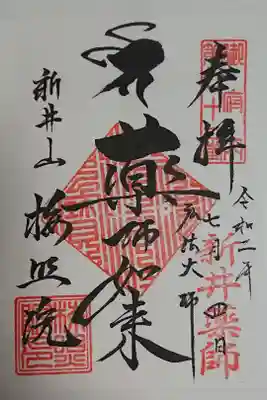 奉拝
令和二年
七月四日
新井薬師
弘法大師
薬師如来
新井山
梅照院